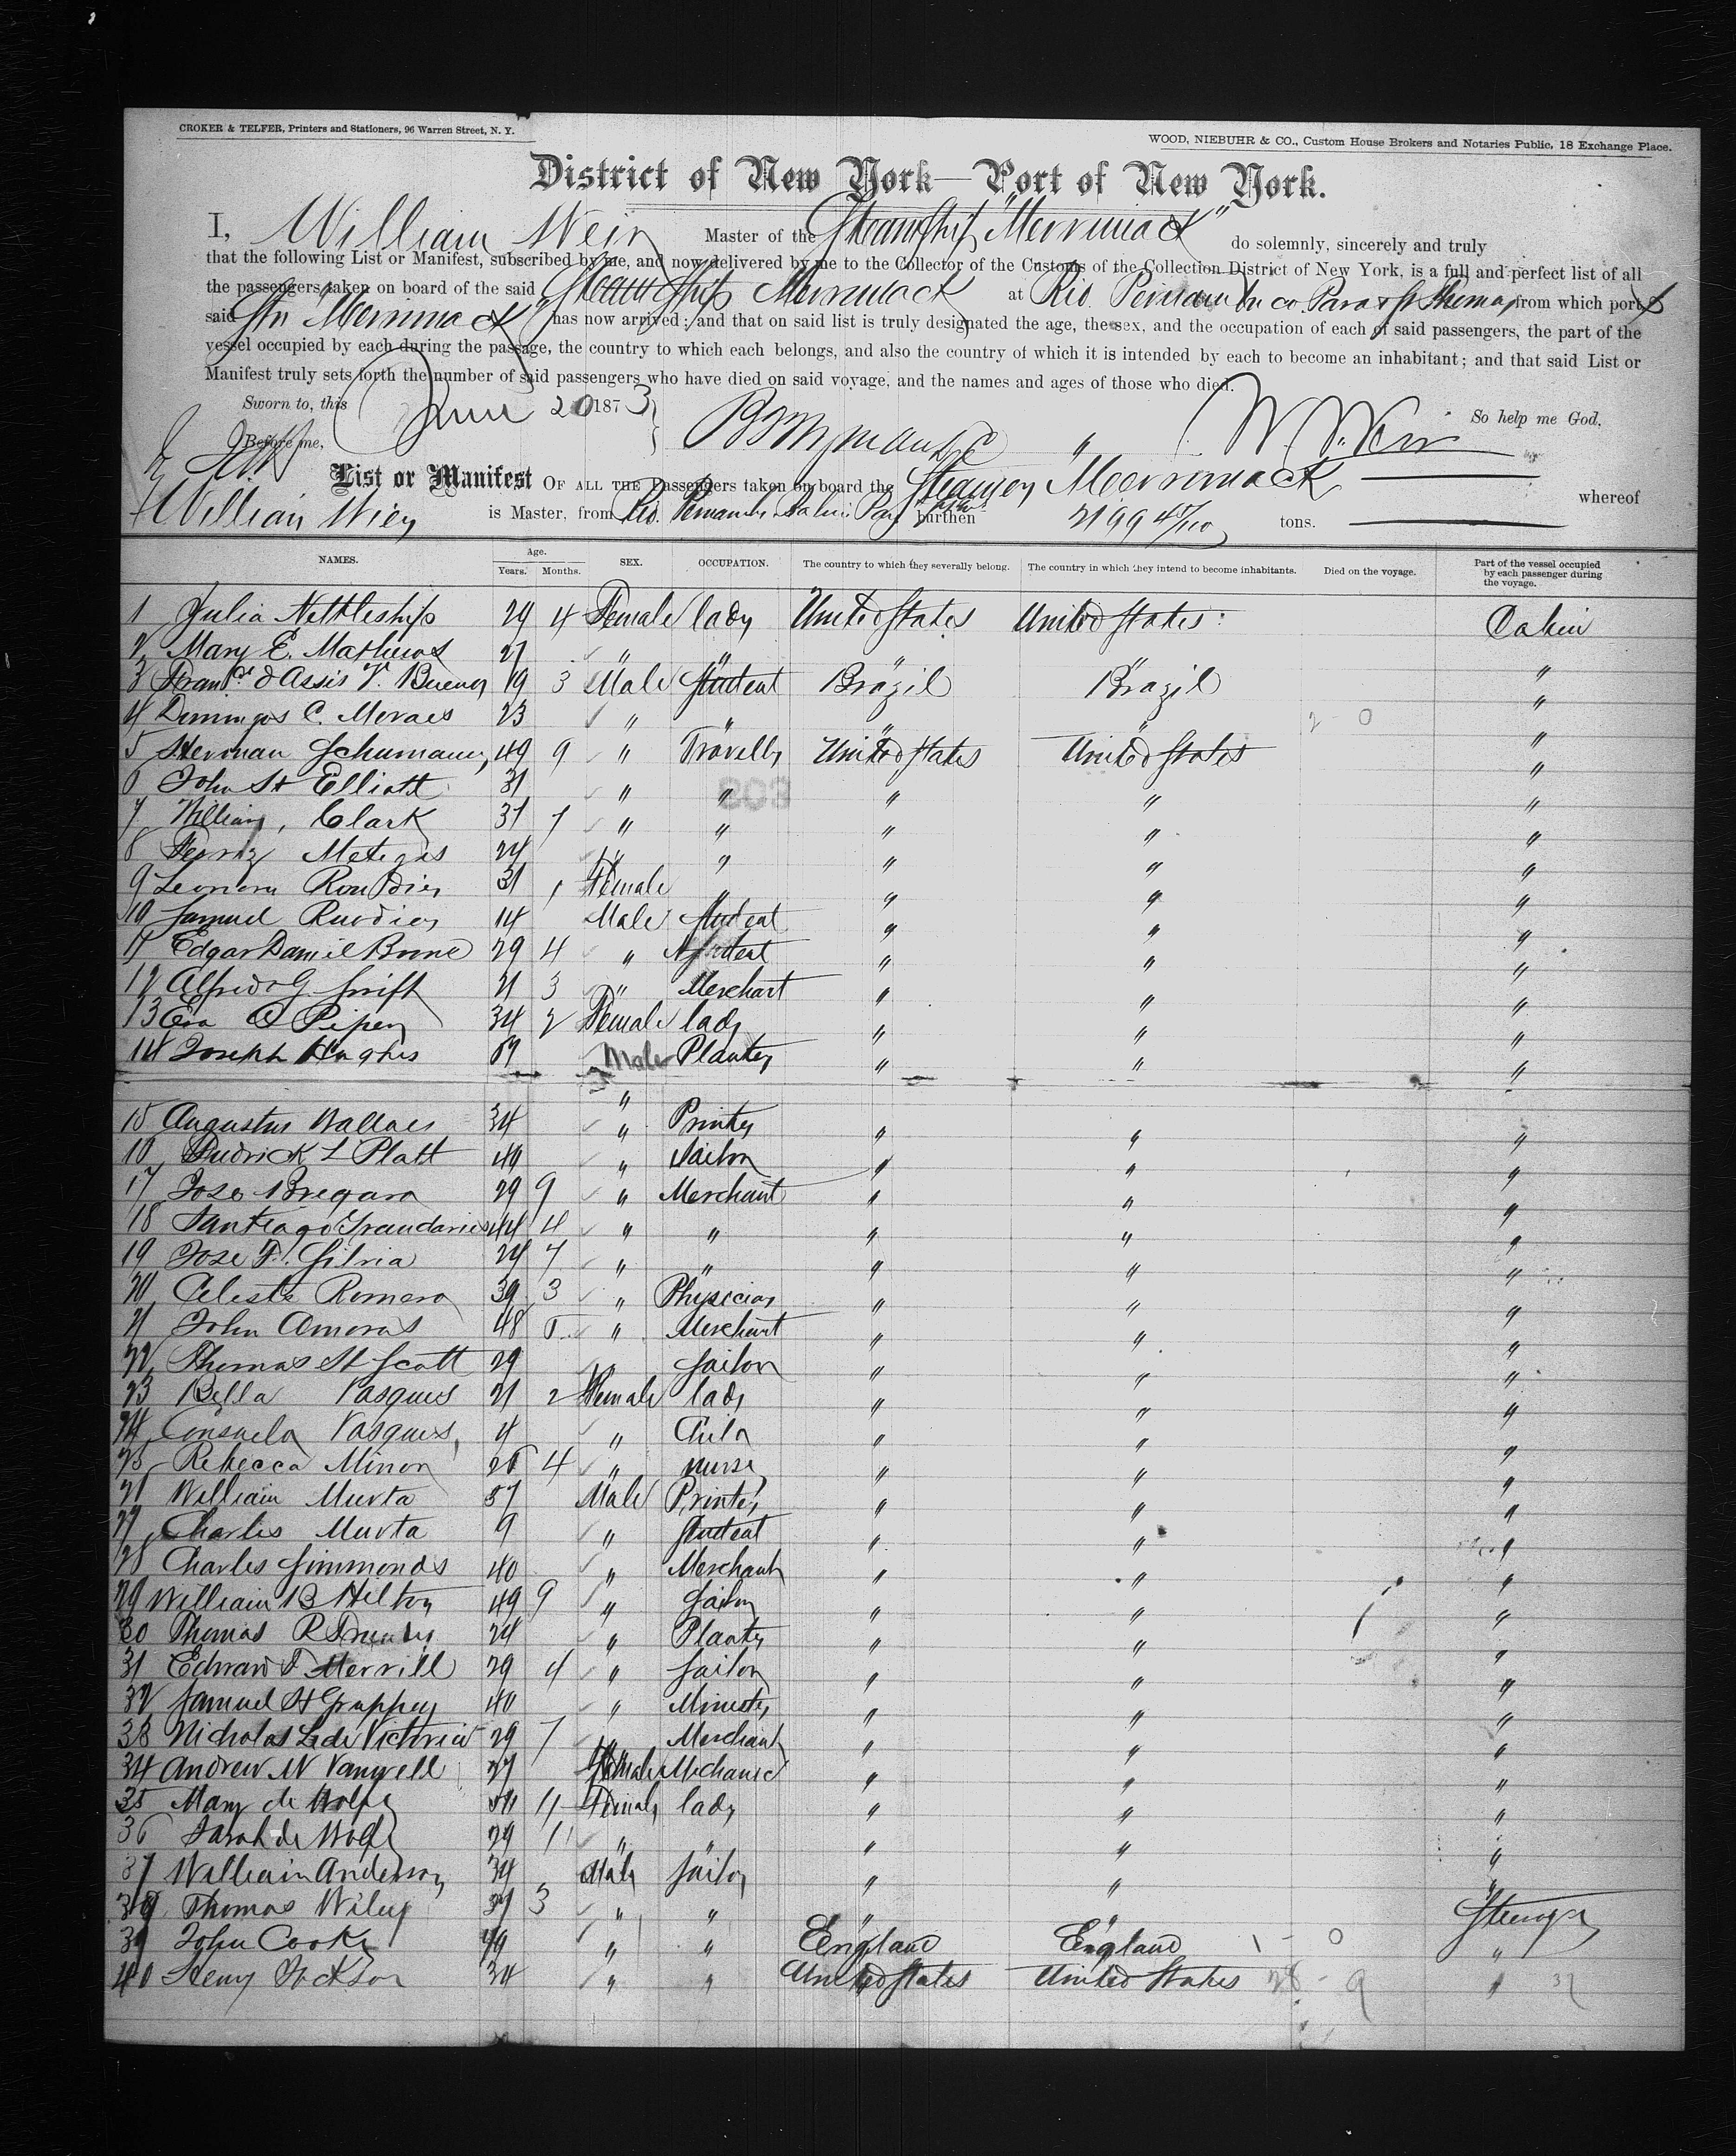 CROKER & TELFER, Printers and Stationers, 96 Warren Street, N. Y.
WOOD, NIEBUHR & CO., Custom House Brokers and Notaries Public, 18 Exchange Place.
District of New York—Port of New York.
I, William Weir Master of the Steamship "Merrimack" do solemnly, sincerely and truly
that the following List or Manifest, subscribed by me, and now delivered by me to the Collector of the Customs of the Collection District of New York, is a full and perfect list of all
the passengers taken on board of the said Steam Ship Merrimack at Rio. Pernambuco Para & St Thomas from which port
said Str Merrimack has now arrived; and that on said list is truly designated the age, the sex, and the occupation of each of said passengers, the part of the
vessel occupied by each during the passage, the country to which each belongs, and also the country of which it is intended by each to become an inhabitant; and that said List or
Manifest truly sets forth the number of said passengers who have died on said voyage, and the names and ages of those who died.
Sworn to, this June 20 1873 So help me God,
Before me, W. Weir
List or Manifest OF ALL THE Passengers taken on board the Steamer Merrimack whereof
William Wier is Master, from Rio. Pernamb. Bahia Para burthen 2199 tons.
NAMES. Age. Years. Months. SEX. OCCUPATION. The country to which they severally belong. The country in which they intend to become inhabitants. Died on the voyage. Part of the vessel occupied by each passenger during the voyage.
1 Julia Nettleship 29 4 Female lady United States United States Cabin
2 Mary E. Mathews 27 " " " " "
3 Fran.co d Assis V. Bueno 19 3 Male Student Brazil Brazil "
4 Domingos C. Moraes 23 " " " " 2 - 0 "
5 Herman Schumann 49 9 " Traveller United States United States "
6 John H Elliott 31 " " " " "
7 William Clark 37 7 " " " " "
8 24 " " " " "
9 Leonora 31 1 Female " " " "
10 Samuel 14 Male Student " " "
11 Edgar Daniel Boone 29 4 " Student " " "
12 Alfred G Swift 21 3 " Merchant " " "
13 Eva O Piper 34 2 Female lady " " "
14 Joseph Hughes Male Planter " " "
15 Augustus Wallace 34 " Printer " " "
16 Fredrick L Platt 40 " Sailor " " "
17 Jose Bregaro 29 9 " Merchant " " "
18 Santiago 44 4 " " " " "
19 Jose F. Silvia 24 7 " " " " "
20 Celeste Romero 39 3 " Physician " " "
21 John Amoras 48 " Merchant " " "
22 Thomas H Scott 29 " Sailor " " "
23 Bella Vasques 21 2 Female lady " " "
24 Consuela Vasques 4 " Child " " "
25 Rebecca Minor 26 4 " nurse " " "
26 William Murta 57 Male Printer " " "
27 Charles Murta 9 " Student " " "
28 Charles Simmonds 40 " Merchant " " "
29 William B Hilton 49 9 " Sailor " " "
30 Thomas R 24 " Planter " " "
31 Edward F Merrill 29 4 " Sailor " " "
32 Samuel H 40 " Minister " " "
33 Nicholas L de Victoria 29 7 " Merchant " " "
34 Andrew N Vanwell 27 Male Mechanic " " "
35 Mary de Wolfe 54 11 Female lady " " "
36 Sarah de Wolfe 29 11 " " " " "
37 William Anderson 34 Male Sailor " " "
38 Thomas Wiley 37 3 " " " " Steerage
39 John Cooke 49 " " England England 1 - 0 "
40 Henry Jackson 34 " " United States United States 28 - 9 "